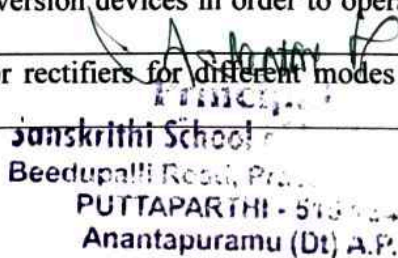 version devices in order to oper
r rectifiers for different modes
Principal
Sanskrithi School
Beedupalli Road, Pra
PUTTAPARTHI - 515
Anantapuramu (Dt) A.P.